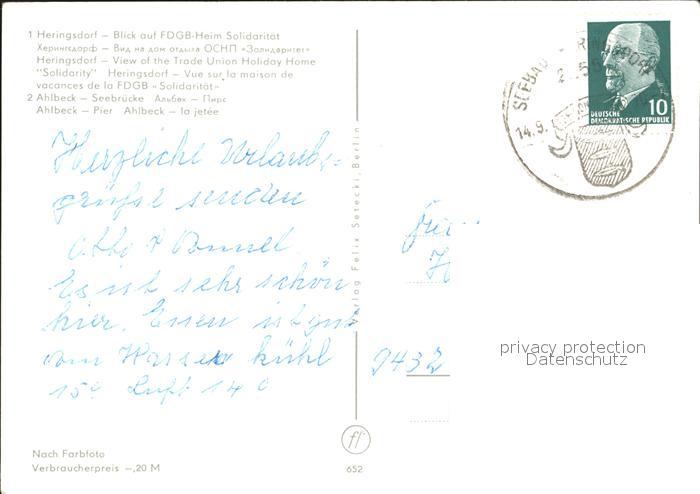 1 Heringsdorf – Blick auf FDGB-Heim Solidarität
Херингсдорф – Вид на дом отдыха ОСНП «Золидаритет»
Heringsdorf – View of the Trade Union Holiday Home
"Solidarity" Heringsdorf – Vue sur la maison de
vacances de la FDGB «Solidarität»
2 Ahlbeck – Seebrücke Альбек – Пирс
Ahlbeck – Pier Ahlbeck – la jetée
Herzliche Urlaubs=
grüße senden
Otto +
Es ist sehr schön
hier. Essen ist gut
Wasser kühl
15° Luft 14°
Verlag Felix Setecki, Berlin
SEEBAD
14.9.
10
DEUTSCHE
DEMOKRATISCHE REPUBLIK
9432
privacy protection
Datenschutz
Nach Farbfoto
Verbraucherpreis –,20 M
ff
652